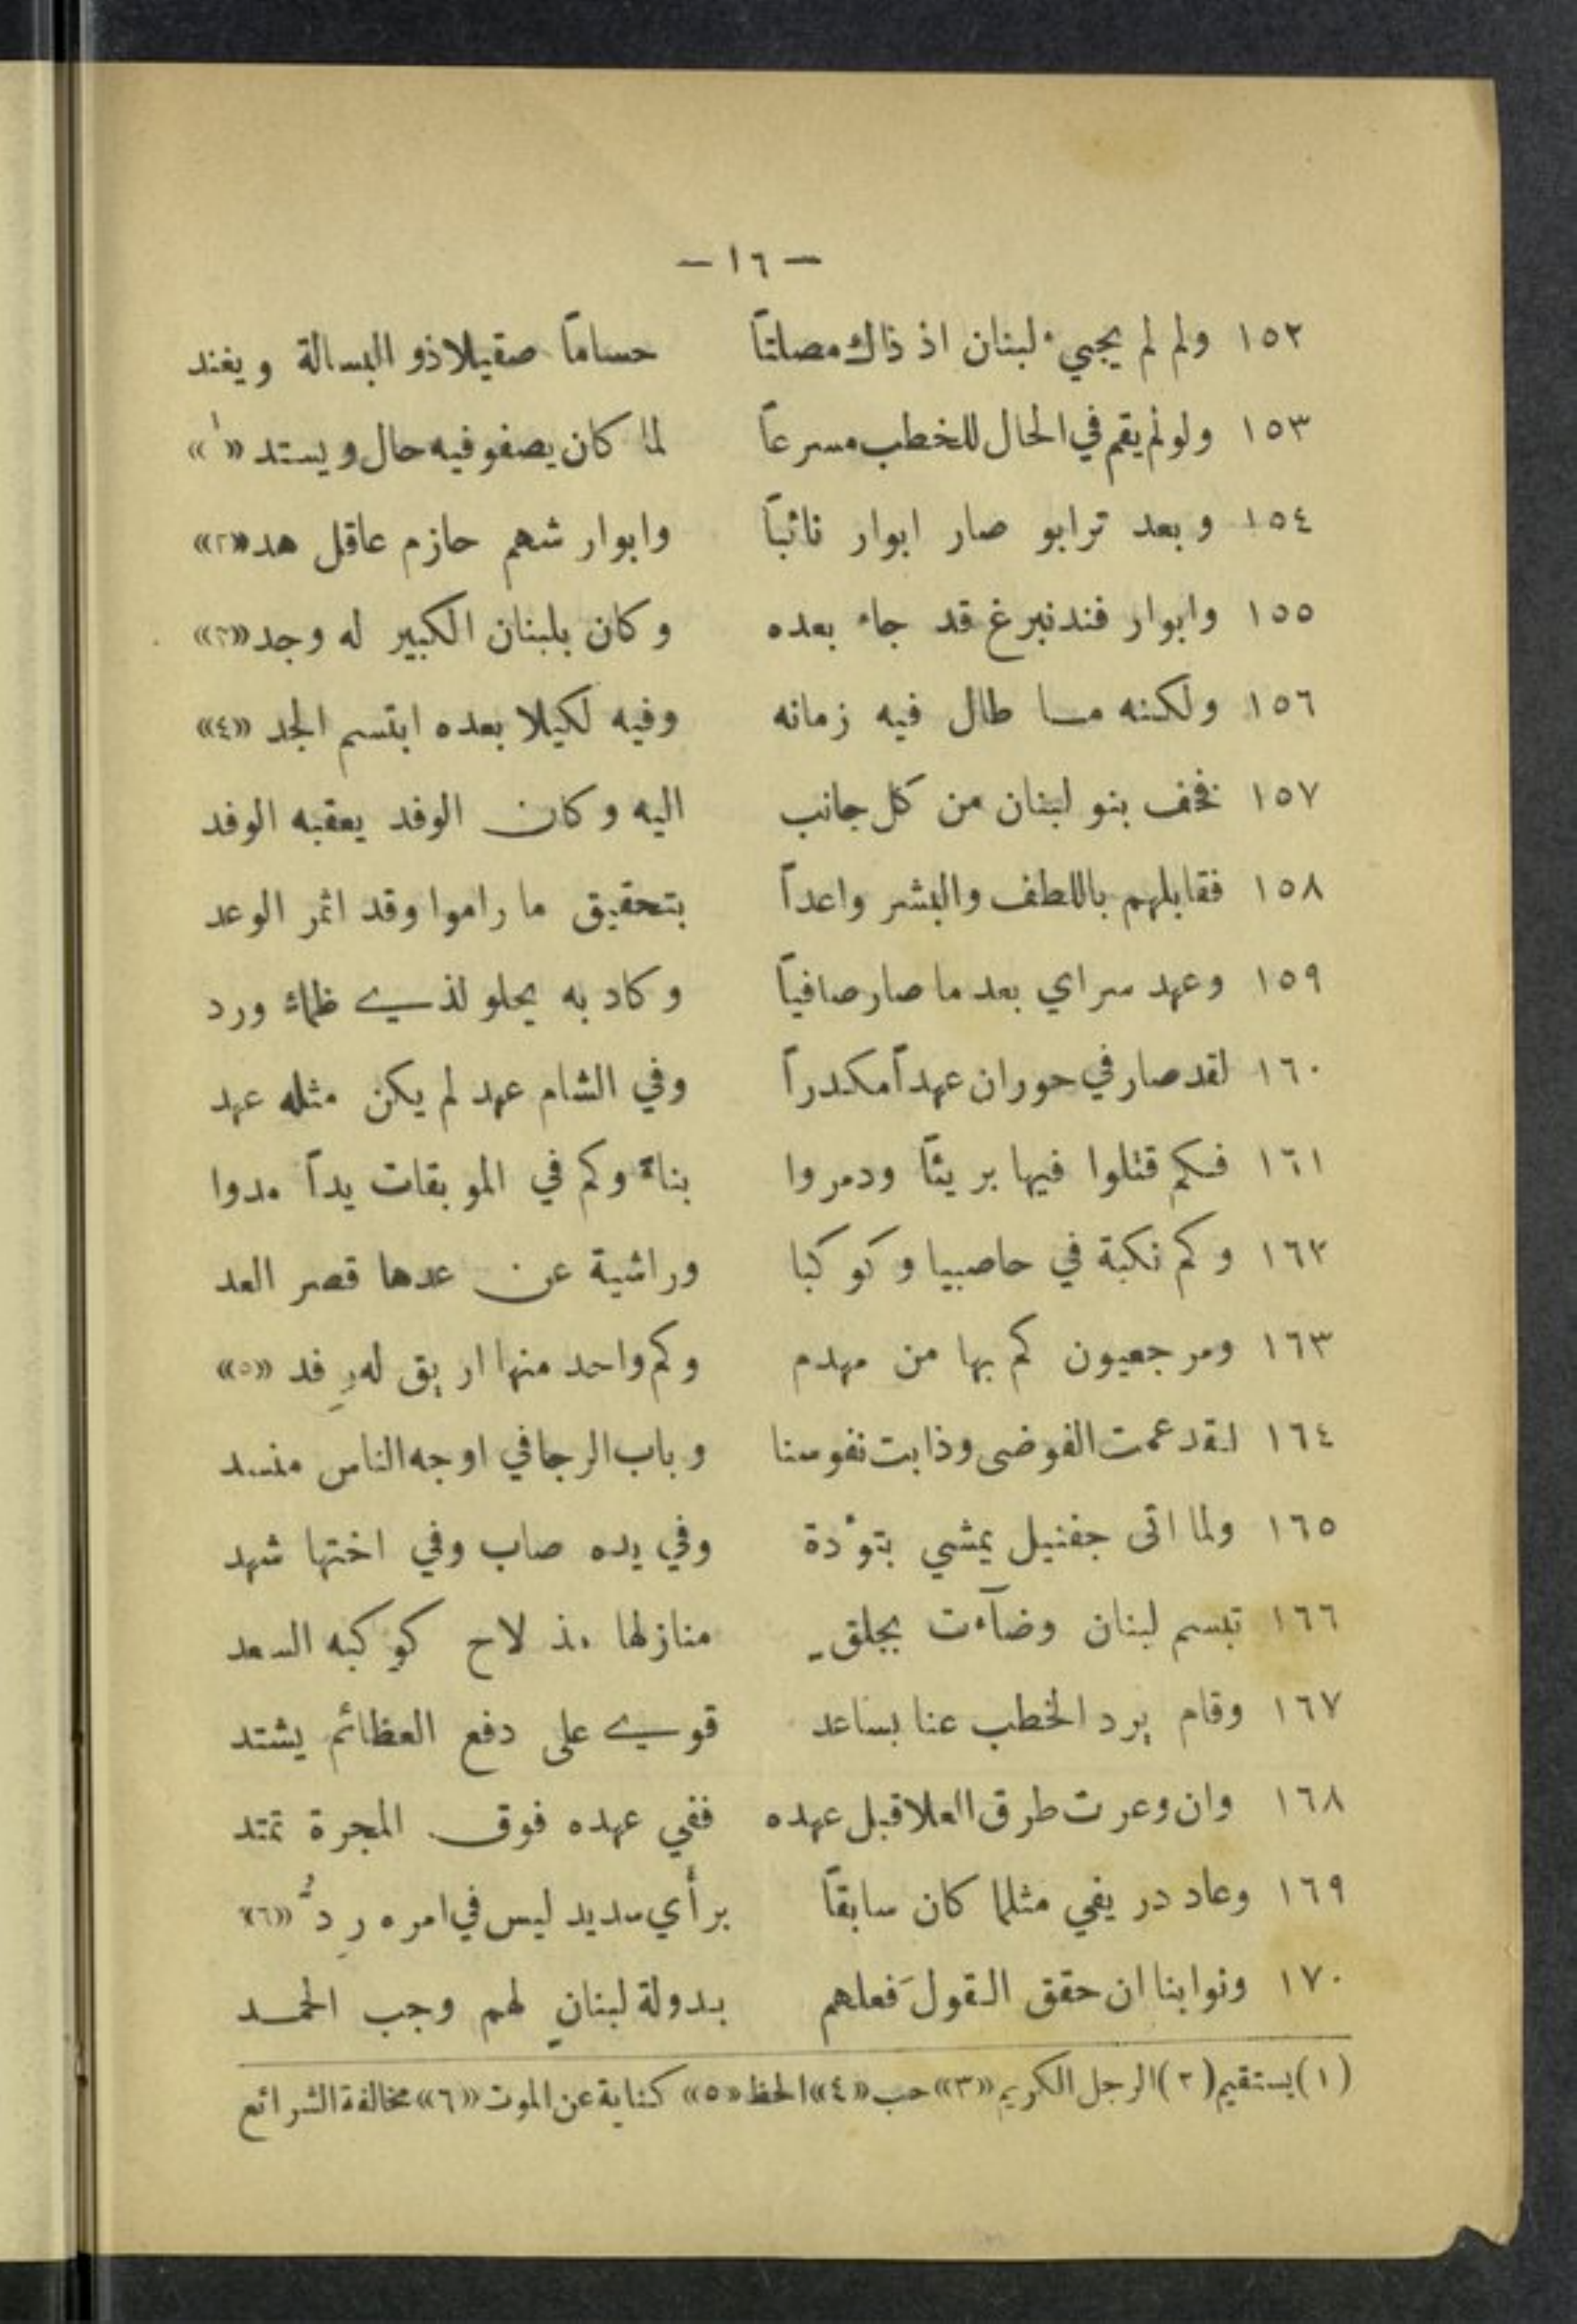 — ١٦ —
١٥٢ ولم لم يجيء لبنان اذ ذاك مصلتاً حساماً صقيلا ذو البسالة ويغند
١٥٣ ولو لم يقم في الحال للخطب مسرعاً لما كان يصفو فيه حال ويستد «١»
١٥٤ وبعد ترابو صار ابوار نائباً وابوار شهم حازم عاقل هد «٢»
١٥٥ وابوار فندنبرغ قد جاء بعده وكان بلبنان الكبير له وجد «٣»
١٥٦ ولكنه ما طال فيه زمانه وفيه لكيلا بعده ابتسم الجد «٤»
١٥٧ فخف بنو لبنان من كل جانب اليه وكان الوفد يعقبه الوفد
١٥٨ فقابلهم باللطف والبشر واعداً بتحقيق ما راموا وقد اثمر الوعد
١٥٩ وعهد سراي بعد ما صار صافياً وكاد به يحلو لذي ظماء ورد
١٦٠ لقد صار في حوران عهداً مكدراً وفي الشام عهد لم يكن مثله عهد
١٦١ فكم قتلوا فيها بريئاً ودمروا بناءً وكم في الموبقات يداً مدوا
١٦٢ وكم نكبة في حاصبيا وكوكبا وراشية عن عدها قصر العد
١٦٣ ومرجعيون كم بها من مهدم وكم واحد منها اريق له رِفد «٥»
١٦٤ لقد عمت الفوضى وذابت نفوسنا وباب الرجا في اوجه الناس منسد
١٦٥ ولما اتى جفنيل يمشي بتوْدة وفي يده صاب وفي اختها شهد
١٦٦ تبسم لبنان وضآءت بجلقٍ منازلها مذ لاح كوكبه السعد
١٦٧ وقام يرد الخطب عنا بساعد قوي على دفع العظائم يشتد
١٦٨ وان وعرت طرق العلا قبل عهده ففي عهده فوق المجرة تمتد
١٦٩ وعاد دريفي مثلما كان سابقاً برأي سديد ليس في امره رِدُّ «٦»
١٧٠ ونوابنا ان حقق القولَ فعلهم بدولة لبنانٍ لهم وجب الحمد
(١) يستقيم (٢) الرجل الكريم «٣» حب «٤» الحظ «٥» كناية عن الموت «٦» مخالفة الشرائع